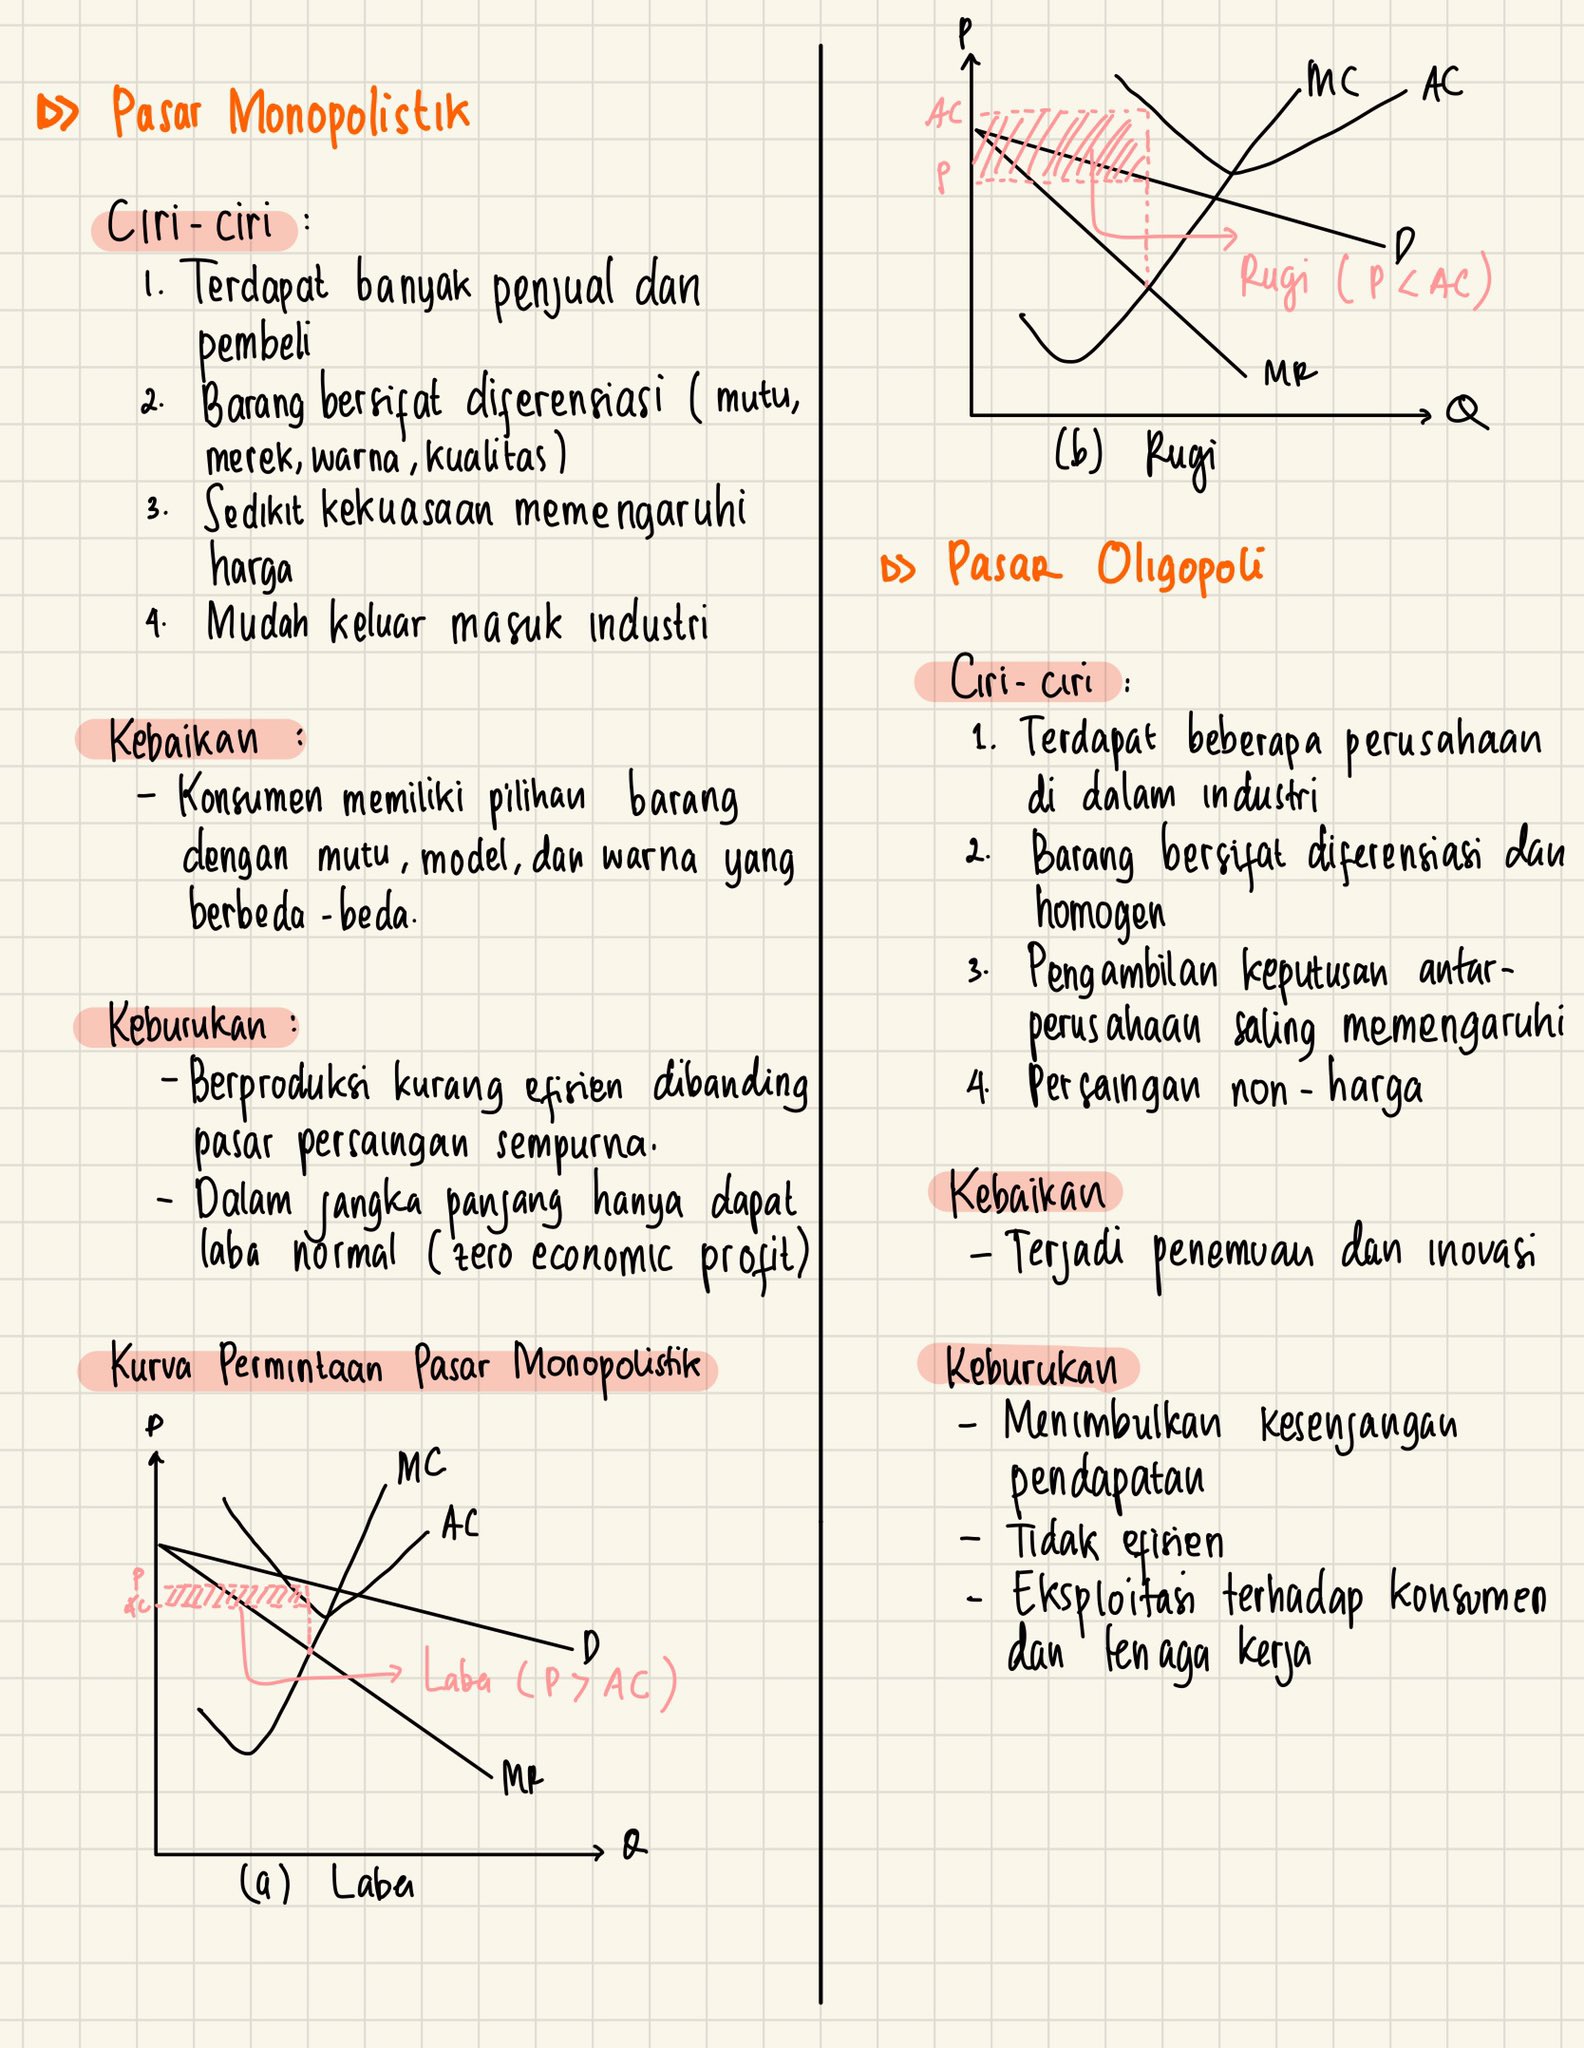 Pasar Monopolistik
Ciri-ciri :
1. Terdapat banyak penjual dan
pembeli
2. Barang bersifat diferensiasi (mutu,
merek, warna, kualitas)
3. Sedikit kekuasaan memengaruhi
harga
4. Mudah keluar masuk industri
Kebaikan :
- Konsumen memiliki pilihan barang
dengan mutu, model, dan warna yang
berbeda-beda.
Keburukan :
- Berproduksi kurang efisien dibanding
pasar persaingan sempurna.
- Dalam jangka panjang hanya dapat
laba normal (zero economic profit)
Kurva Permintaan Pasar Monopolistik
P
MC
AC
P
AC
D
Laba (P > AC)
MR
Q
(a) Laba
P
MC
AC
AC
P
D
Rugi (P < AC)
MR
Q
(b) Rugi
Pasar Oligopoli
Ciri-ciri :
1. Terdapat beberapa perusahaan
di dalam industri
2. Barang bersifat diferensiasi dan
homogen
3. Pengambilan keputusan antar-
perusahaan saling memengaruhi
4. Persaingan non-harga
Kebaikan
- Terjadi penemuan dan inovasi
Keburukan
- Menimbulkan kesenjangan
pendapatan
- Tidak efisien
- Eksploitasi terhadap konsumen
dan tenaga kerja